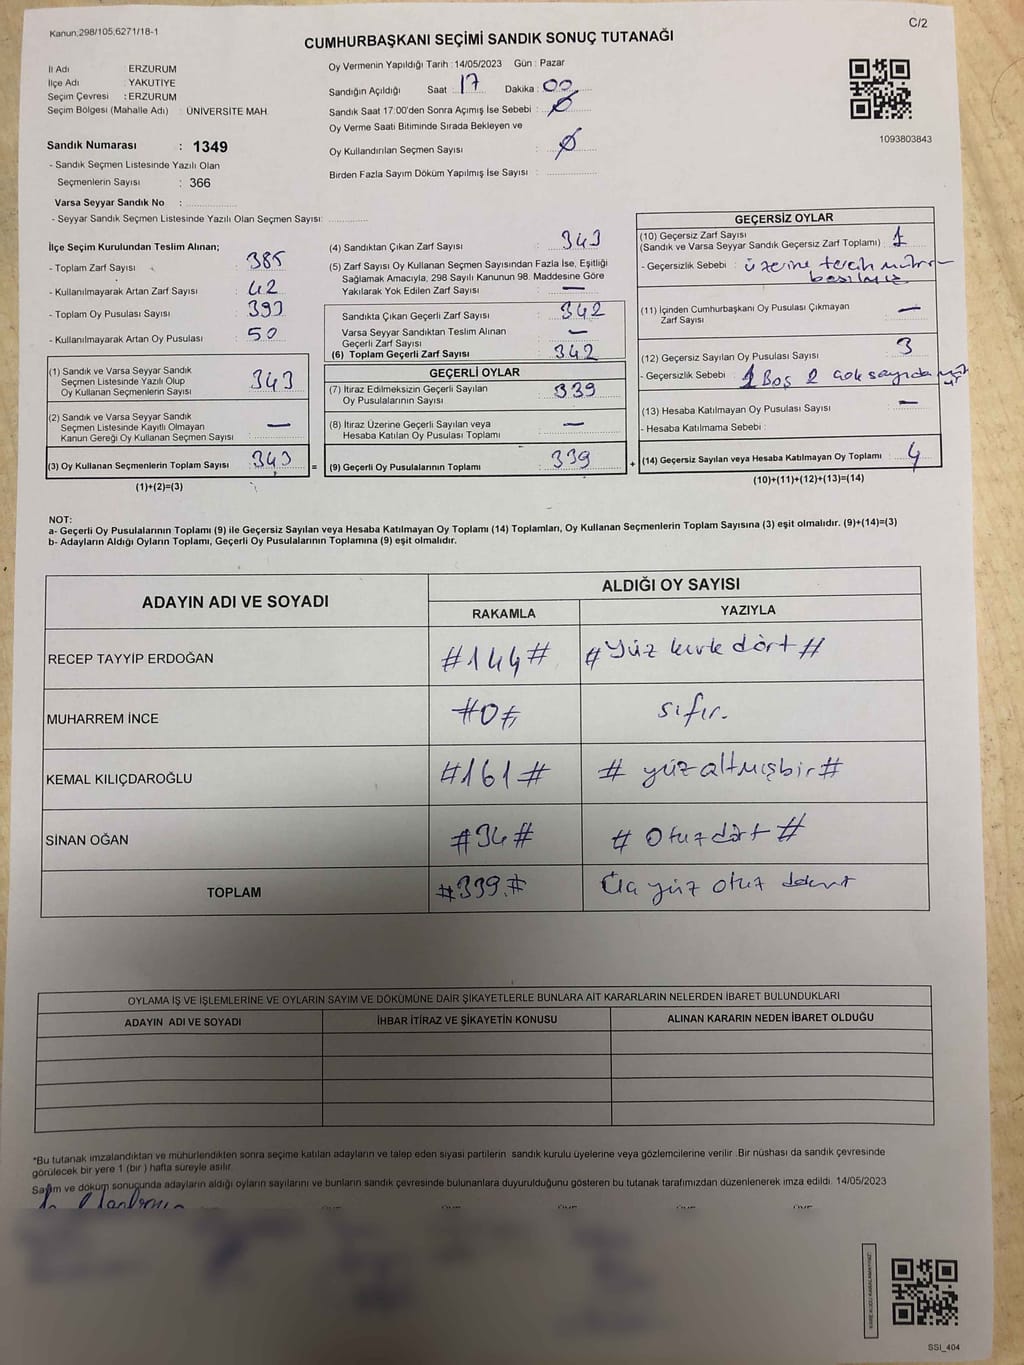 Kanun;298/105,6271/18-1
C/2
CUMHURBAŞKANI SEÇİMİ SANDIK SONUÇ TUTANAĞI
İl Adı : ERZURUM
İlçe Adı : YAKUTİYE
Seçim Çevresi : ERZURUM
Seçim Bölgesi (Mahalle Adı) : ÜNİVERSİTE MAH.
Oy Vermenin Yapıldığı Tarih : 14/05/2023 Gün : Pazar
Sandığın Açıldığı Saat : 17 Dakika : 00
Sandık Saat 17:00'den Sonra Açımış İse Sebebi : Ø
Oy Verme Saati Bitiminde Sırada Bekleyen ve
Oy Kullandırılan Seçmen Sayısı : Ø
Birden Fazla Sayım Döküm Yapılmış İse Sayısı :
1093803843
Sandık Numarası : 1349
- Sandık Seçmen Listesinde Yazılı Olan
Seçmenlerin Sayısı : 366
Varsa Seyyar Sandık No :
- Seyyar Sandık Seçmen Listesinde Yazılı Olan Seçmen Sayısı:
İlçe Seçim Kurulundan Teslim Alınan;
- Toplam Zarf Sayısı : 385
- Kullanılmayarak Artan Zarf Sayısı : 42
- Toplam Oy Pusulası Sayısı : 393
- Kullanılmayarak Artan Oy Pusulası : 50
(1) Sandık ve Varsa Seyyar Sandık
Seçmen Listesinde Yazılı Olup
Oy Kullanan Seçmenlerin Sayısı : 343
(2) Sandık ve Varsa Seyyar Sandık
Seçmen Listesinde Kayıtlı Olmayan
Kanun Gereği Oy Kullanan Seçmen Sayısı : —
(3) Oy Kullanan Seçmenlerin Toplam Sayısı : 343 =
(1)+(2)=(3)
(4) Sandıktan Çıkan Zarf Sayısı : 343
(5) Zarf Sayısı Oy Kullanan Seçmen Sayısından Fazla İse, Eşitliği
Sağlamak Amacıyla, 298 Sayılı Kanunun 98. Maddesine Göre
Yakılarak Yok Edilen Zarf Sayısı : —
Sandıkta Çıkan Geçerli Zarf Sayısı : 342
Varsa Seyyar Sandıktan Teslim Alınan
Geçerli Zarf Sayısı : —
(6) Toplam Geçerli Zarf Sayısı : 342
GEÇERLİ OYLAR
(7) İtiraz Edilmeksizin Geçerli Sayılan
Oy Pusulalarının Sayısı : 339
(8) İtiraz Üzerine Geçerli Sayılan veya
Hesaba Katılan Oy Pusulası Toplamı : —
(9) Geçerli Oy Pusulalarının Toplamı : 339 +
GEÇERSİZ OYLAR
(10) Geçersiz Zarf Sayısı
(Sandık ve Varsa Seyyar Sandık Geçersiz Zarf Toplamı) : 1
- Geçersizlik Sebebi : üzerine tercih mührü
basılmış
(11) İçinden Cumhurbaşkanı Oy Pusulası Çıkmayan
Zarf Sayısı : —
(12) Geçersiz Sayılan Oy Pusulası Sayısı : 3
- Geçersizlik Sebebi : 1 Boş 2 çok sayıda
(13) Hesaba Katılmayan Oy Pusulası Sayısı : —
- Hesaba Katılmama Sebebi :
(14) Geçersiz Sayılan veya Hesaba Katılmayan Oy Toplamı : 4
(10)+(11)+(12)+(13)=(14)
NOT:
a- Geçerli Oy Pusulalarının Toplamı (9) ile Geçersiz Sayılan veya Hesaba Katılmayan Oy Toplamı (14) Toplamları, Oy Kullanan Seçmenlerin Toplam Sayısına (3) eşit olmalıdır. (9)+(14)=(3)
b- Adayların Aldığı Oyların Toplamı, Geçerli Oy Pusulalarının Toplamına (9) eşit olmalıdır.
ADAYIN ADI VE SOYADI
ALDIĞI OY SAYISI
RAKAMLA YAZIYLA
RECEP TAYYİP ERDOĞAN #144# #Yüz kırk dört#
MUHARREM İNCE #0# sıfır.
KEMAL KILIÇDAROĞLU #161# # yüzaltmışbir#
SİNAN OĞAN #34# # Otuzdört #
TOPLAM #339.# Üç yüz otuz
OYLAMA İŞ VE İŞLEMLERİNE VE OYLARIN SAYIM VE DÖKÜMÜNE DAİR ŞİKAYETLERLE BUNLARA AİT KARARLARIN NELERDEN İBARET BULUNDUKLARI
ADAYIN ADI VE SOYADI
İHBAR İTİRAZ VE ŞİKAYETİN KONUSU
ALINAN KARARIN NEDEN İBARET OLDUĞU
*Bu tutanak imzalandıktan ve mühürlendikten sonra seçime katılan adayların ve talep eden siyasi partilerin sandık kurulu üyelerine veya gözlemcilerine verilir .Bir nüshası da sandık çevresinde
görülecek bir yere 1 (bir ) hafta süreyle asılır.
Sayım ve döküm sonucunda adayların aldığı oyların sayılarını ve bunların sandık çevresinde bulunanlara duyurulduğunu gösteren bu tutanak tarafımızdan düzenlenerek imza edildi. 14/05/2023
SSI_404